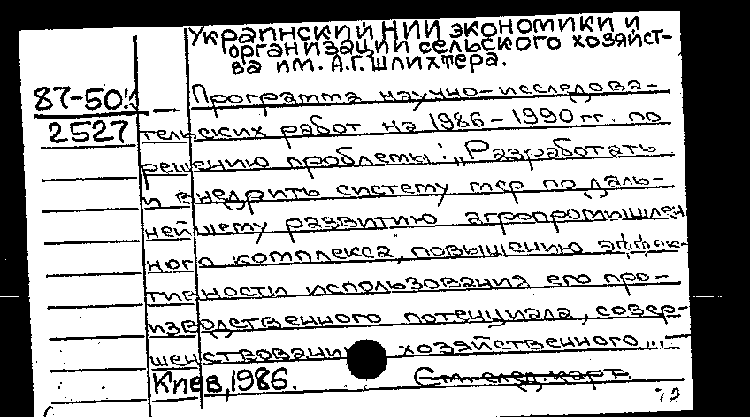 Украинский НИИ экономики и
организации сельского хозяйст-
ва им. А.Г. Шлихтера.
87-50
2527
Программа научно-исследова-
тельских работ на 1986-1990 гг. по
решению проблемы: „Разработать
и внедрить систему мер по даль-
нейшему развитию агропромышлен
ного комплекса, повышению эффек-
тивности использования его про-
изводственного потенциала, совер-
шенствованию хозяйственного...
Киев, 1986. См. след. карт